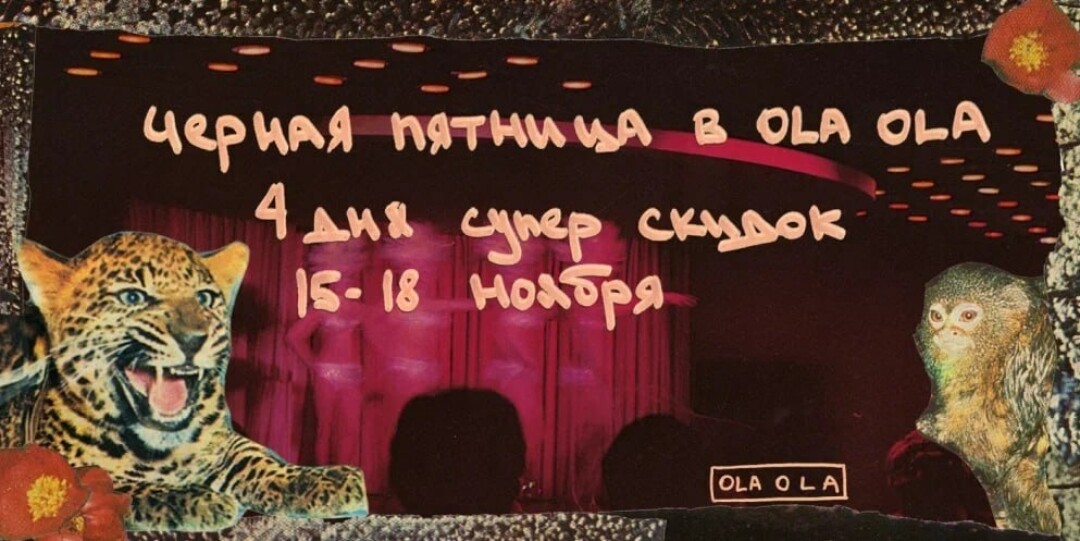 черная пятница в OLA OLA
4 дня супер скидок
15-18 ноября
OLA OLA